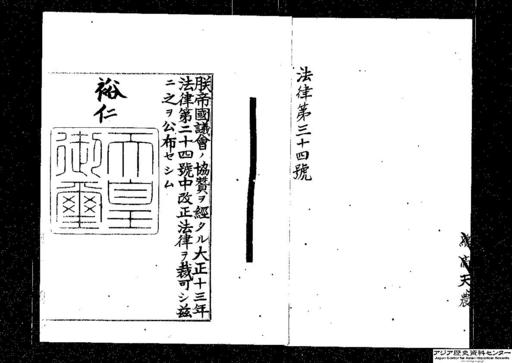 法律第三十四號
朕帝國議會ノ協贊ヲ經タル大正十三年
法律第二十四號中改正法律ヲ裁可シ茲
ニ之ヲ公布セシム
裕仁
天皇
御璽
アジア歴史資料センター
Japan Center for Asian Historical Records